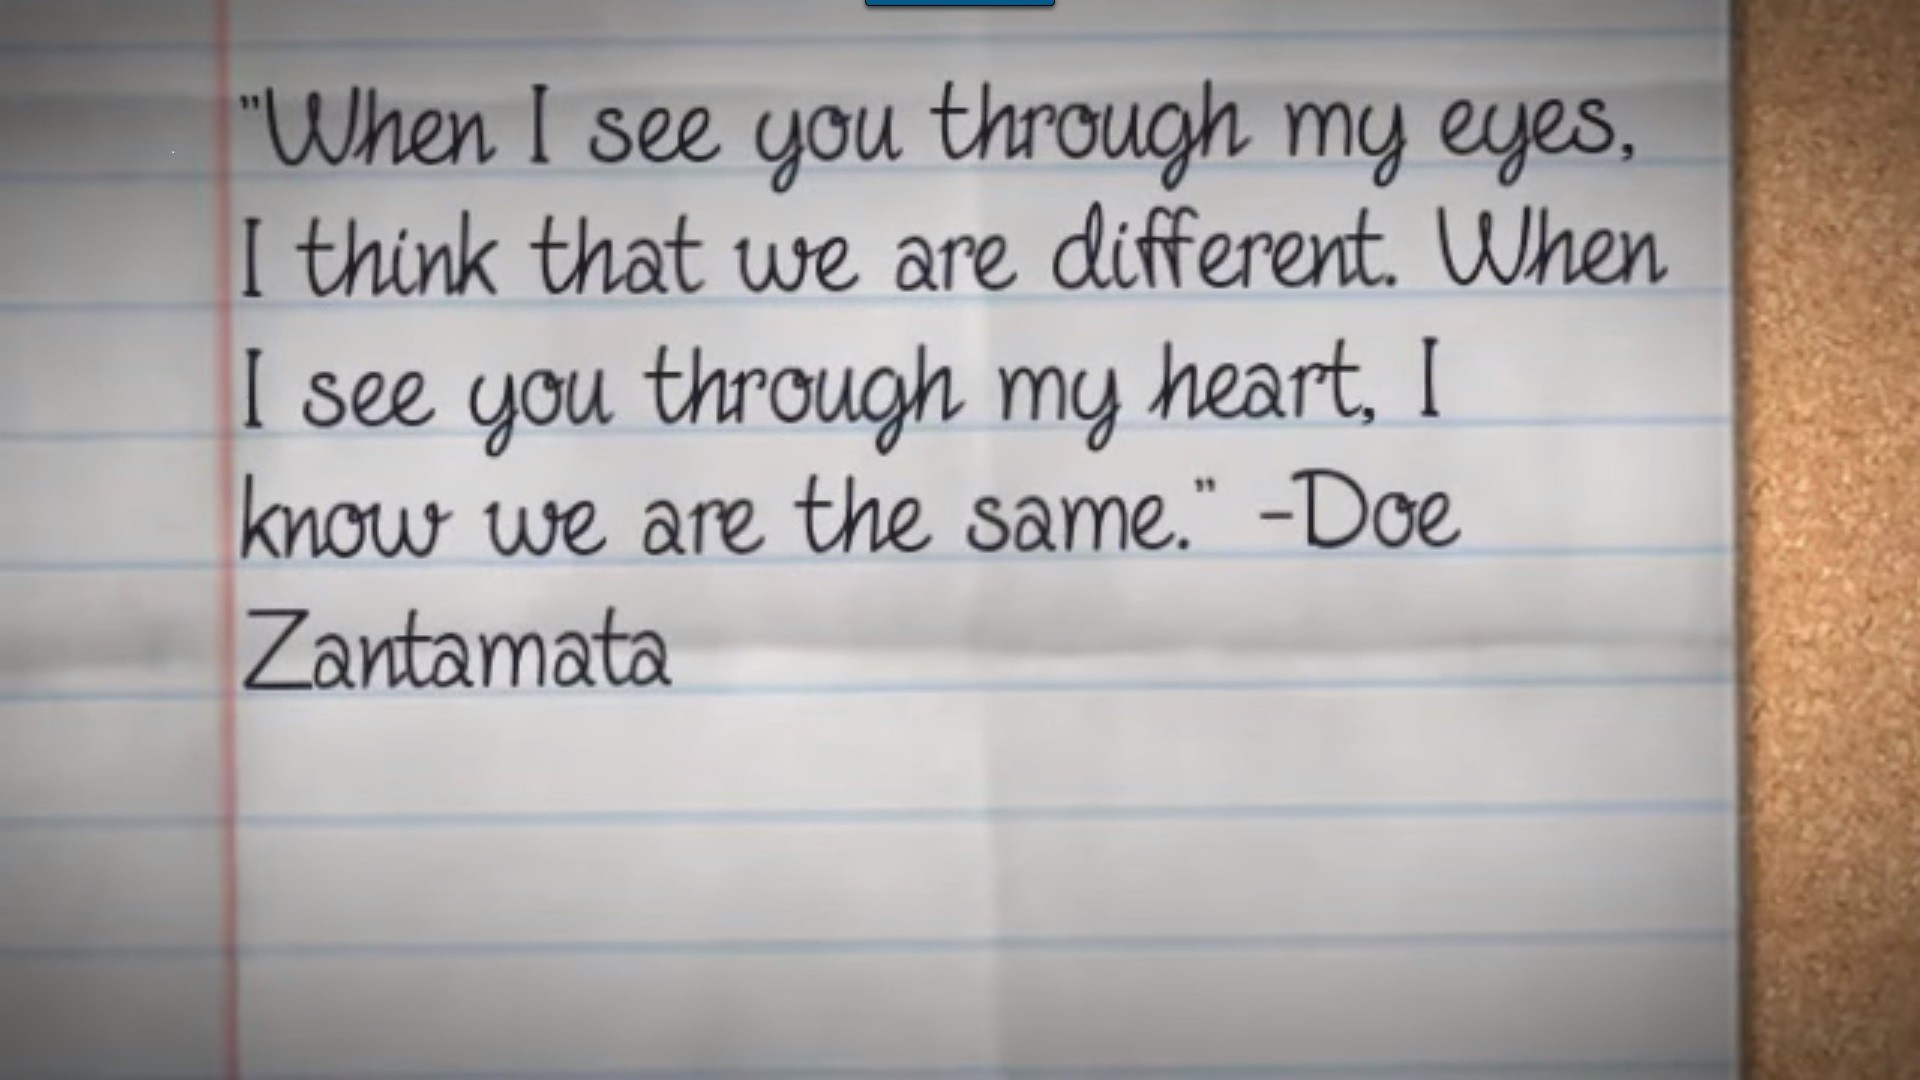 "When I see you through my eyes,
I think that we are different. When
I see you through my heart, I
know we are the same." -Doe
Zantamata